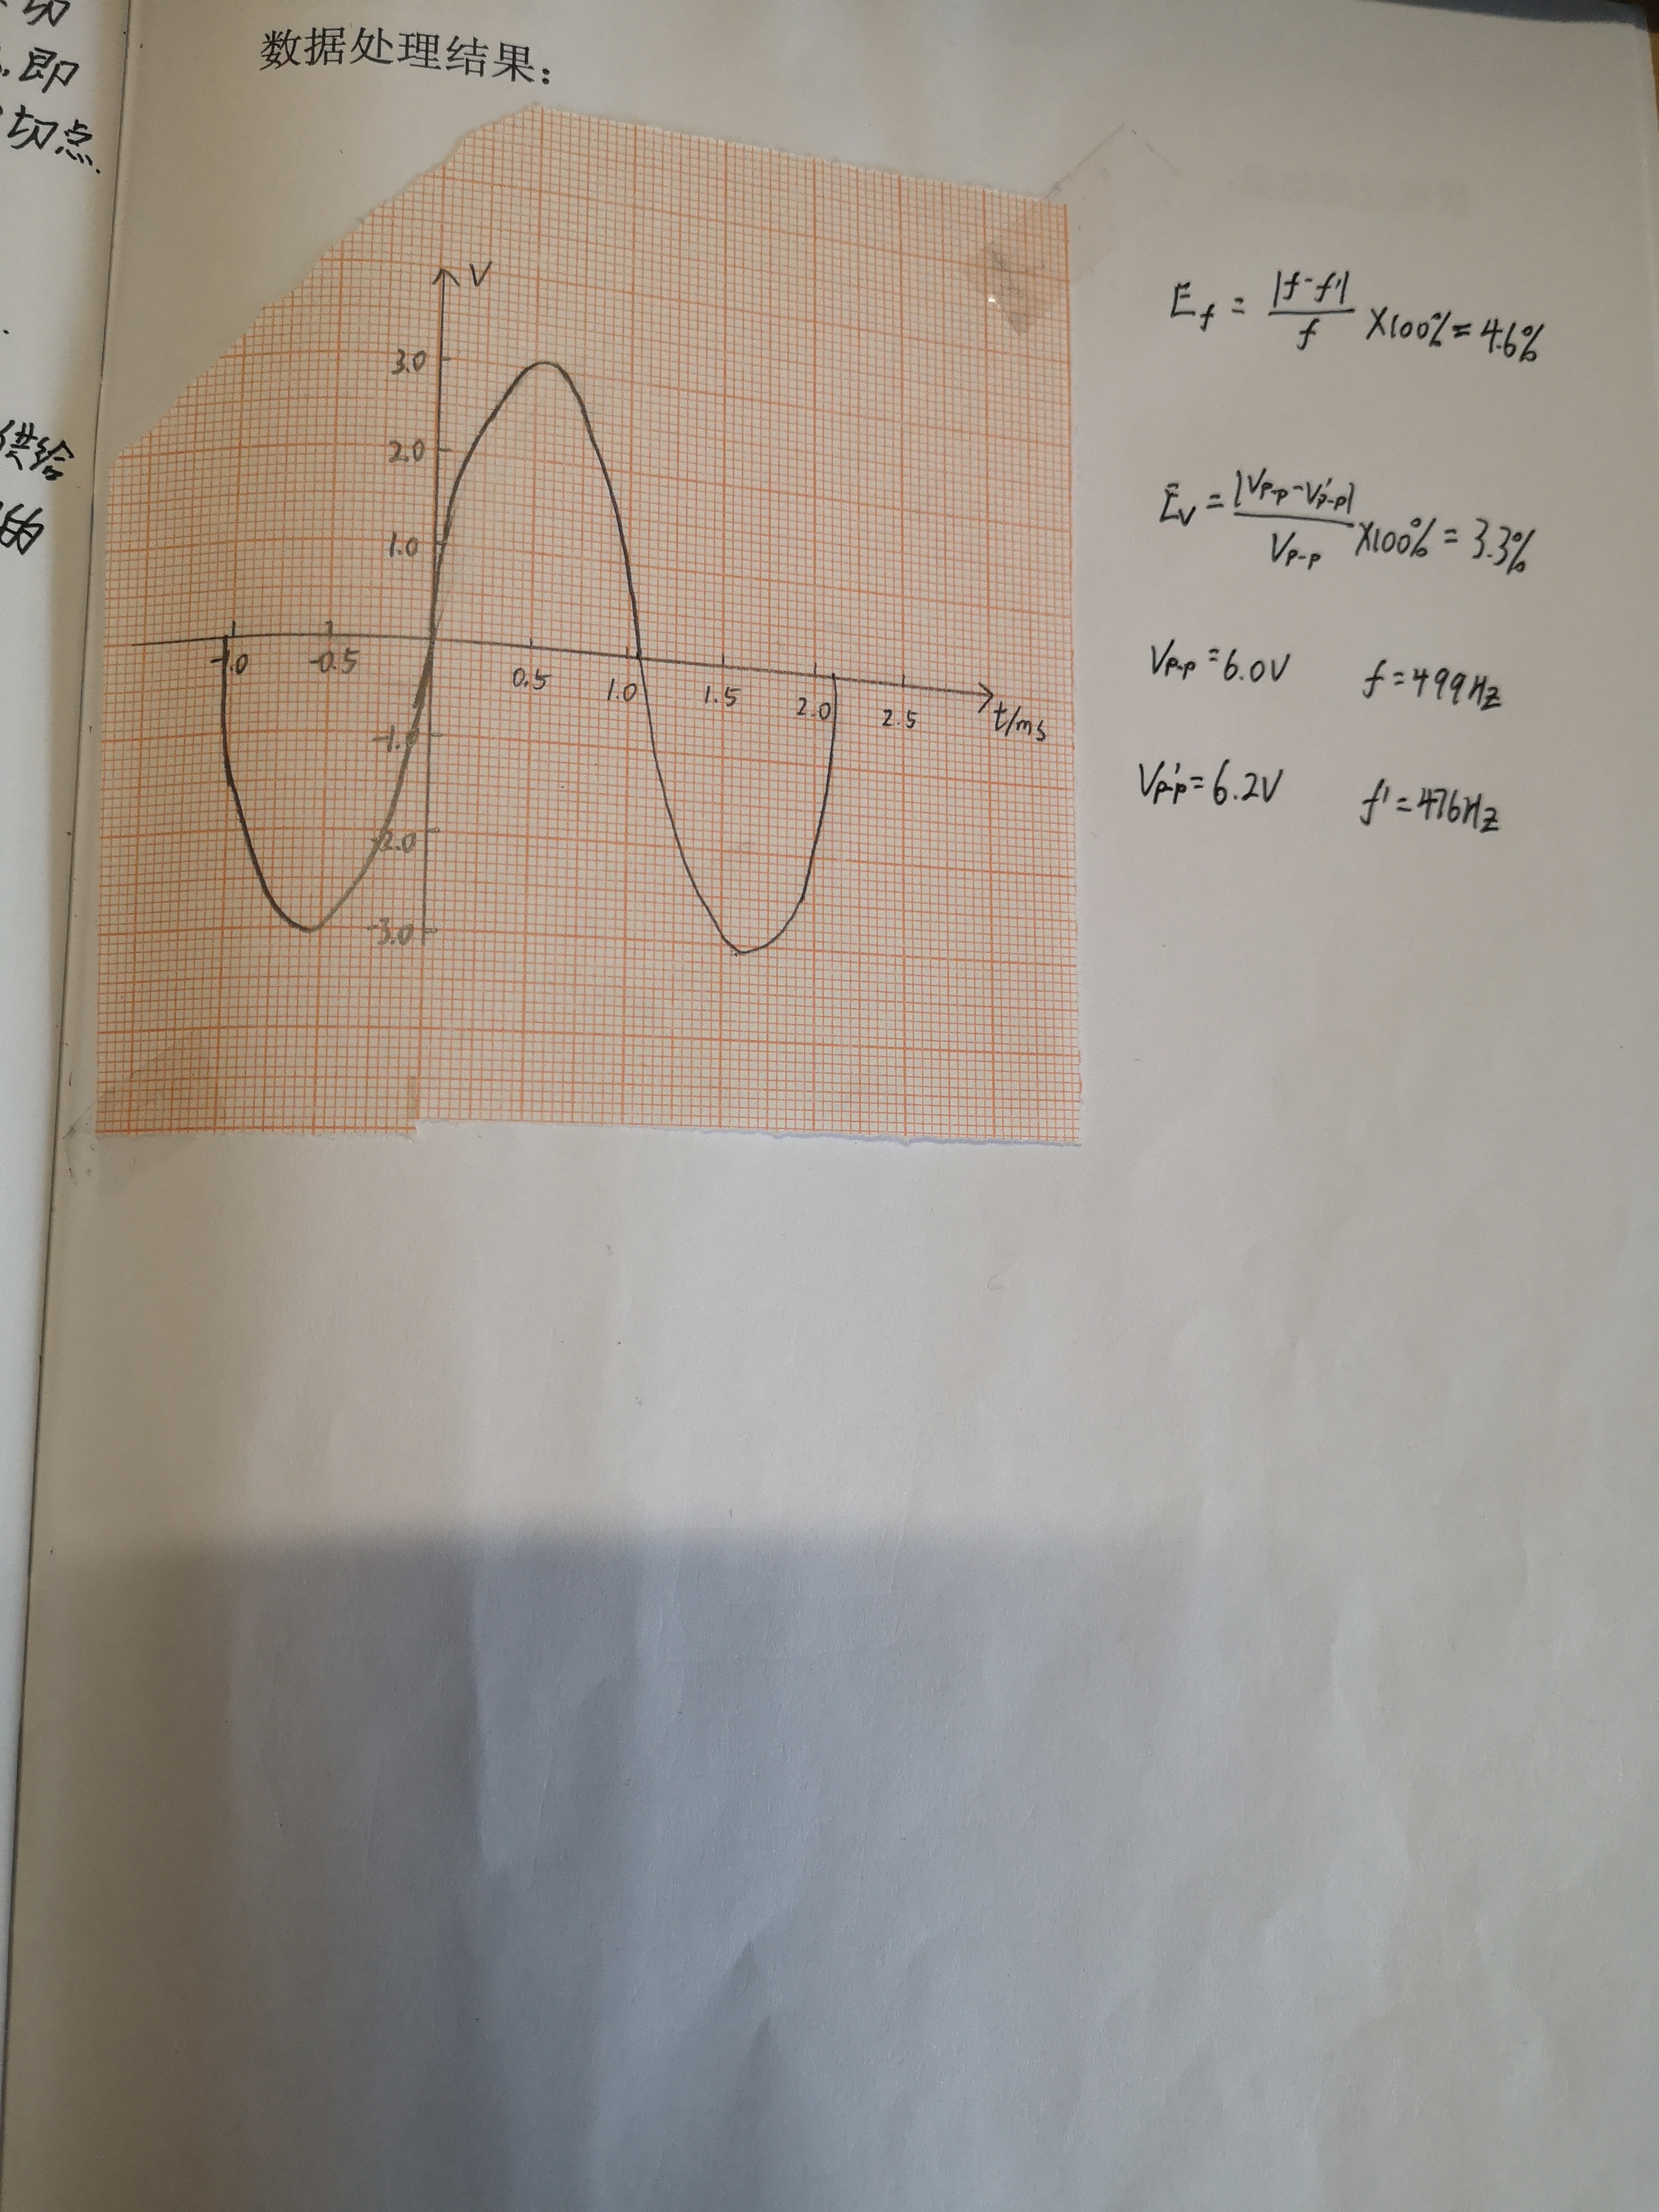 切
即
切点.
供给
的
数据处理结果：
V
3.0
2.0
1.0
-1.0 -0.5 0.5 1.0 1.5 2.0 2.5 t/ms
-1.0
-2.0
-3.0
E_f = |f-f'| / f ×100% = 4.6%
E_V = |V_{P-P}-V'_{P-P}| / V_{P-P} ×100% = 3.3%
V_{P-P}=6.0V f=499Hz
V'_{P-P}=6.2V f'=476Hz